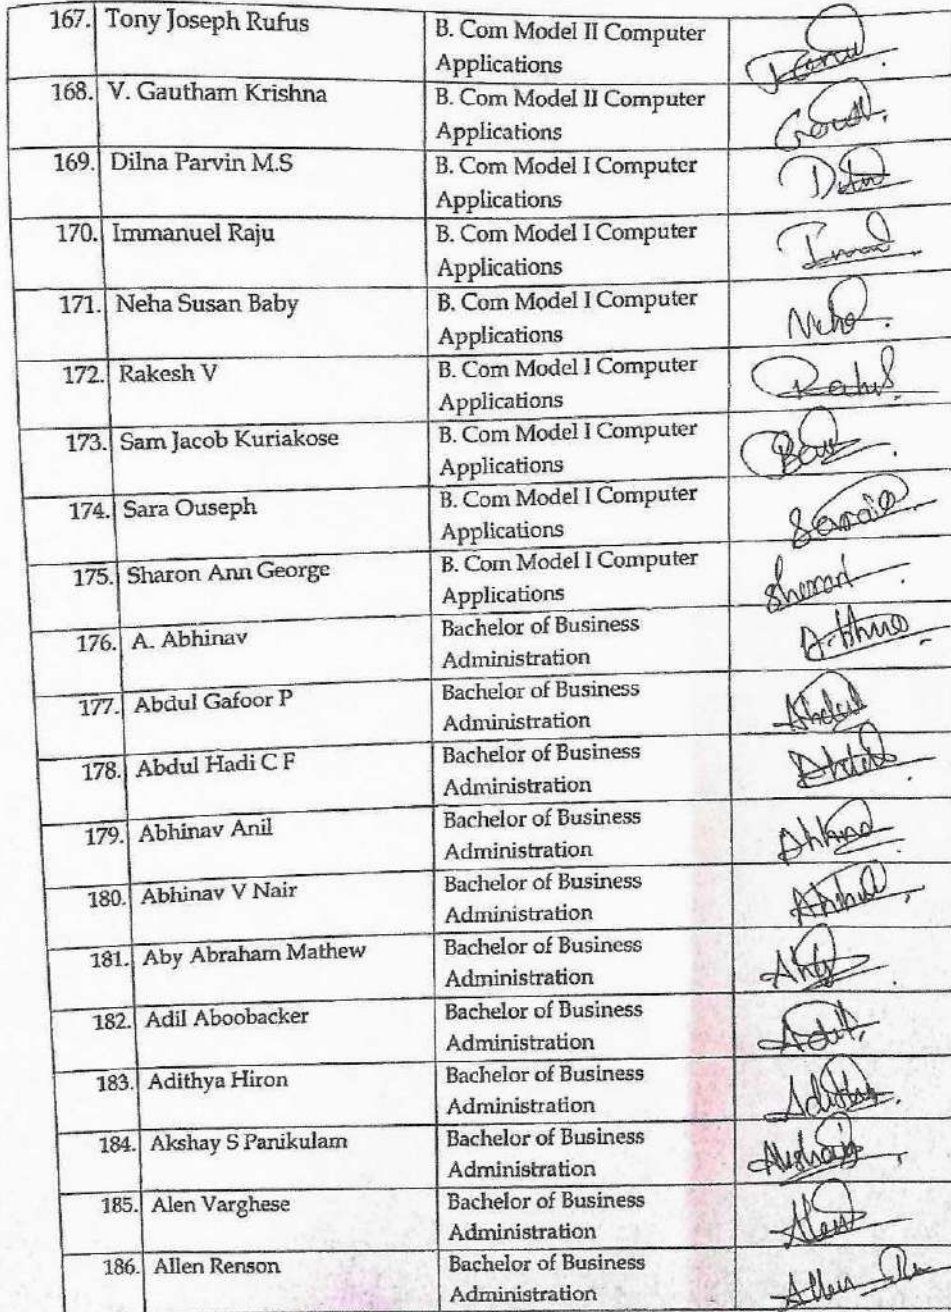 167. Tony Joseph Rufus B. Com Model II Computer
Applications
168. V. Gautham Krishna B. Com Model II Computer
Applications
169. Dilna Parvin M.S B. Com Model I Computer
Applications
170. Immanuel Raju B. Com Model I Computer
Applications
171. Neha Susan Baby B. Com Model I Computer
Applications
172. Rakesh V B. Com Model I Computer
Applications
173. Sam Jacob Kuriakose B. Com Model I Computer
Applications
174. Sara Ouseph B. Com Model I Computer
Applications
175. Sharon Ann George B. Com Model I Computer
Applications
176. A. Abhinav Bachelor of Business
Administration
177. Abdul Gafoor P Bachelor of Business
Administration
178. Abdul Hadi C F Bachelor of Business
Administration
179. Abhinav Anil Bachelor of Business
Administration
180. Abhinav V Nair Bachelor of Business
Administration
181. Aby Abraham Mathew Bachelor of Business
Administration
182. Adil Aboobacker Bachelor of Business
Administration
183. Adithya Hiron Bachelor of Business
Administration
184. Akshay S Panikulam Bachelor of Business
Administration
185. Alen Varghese Bachelor of Business
Administration
186. Allen Renson Bachelor of Business
Administration